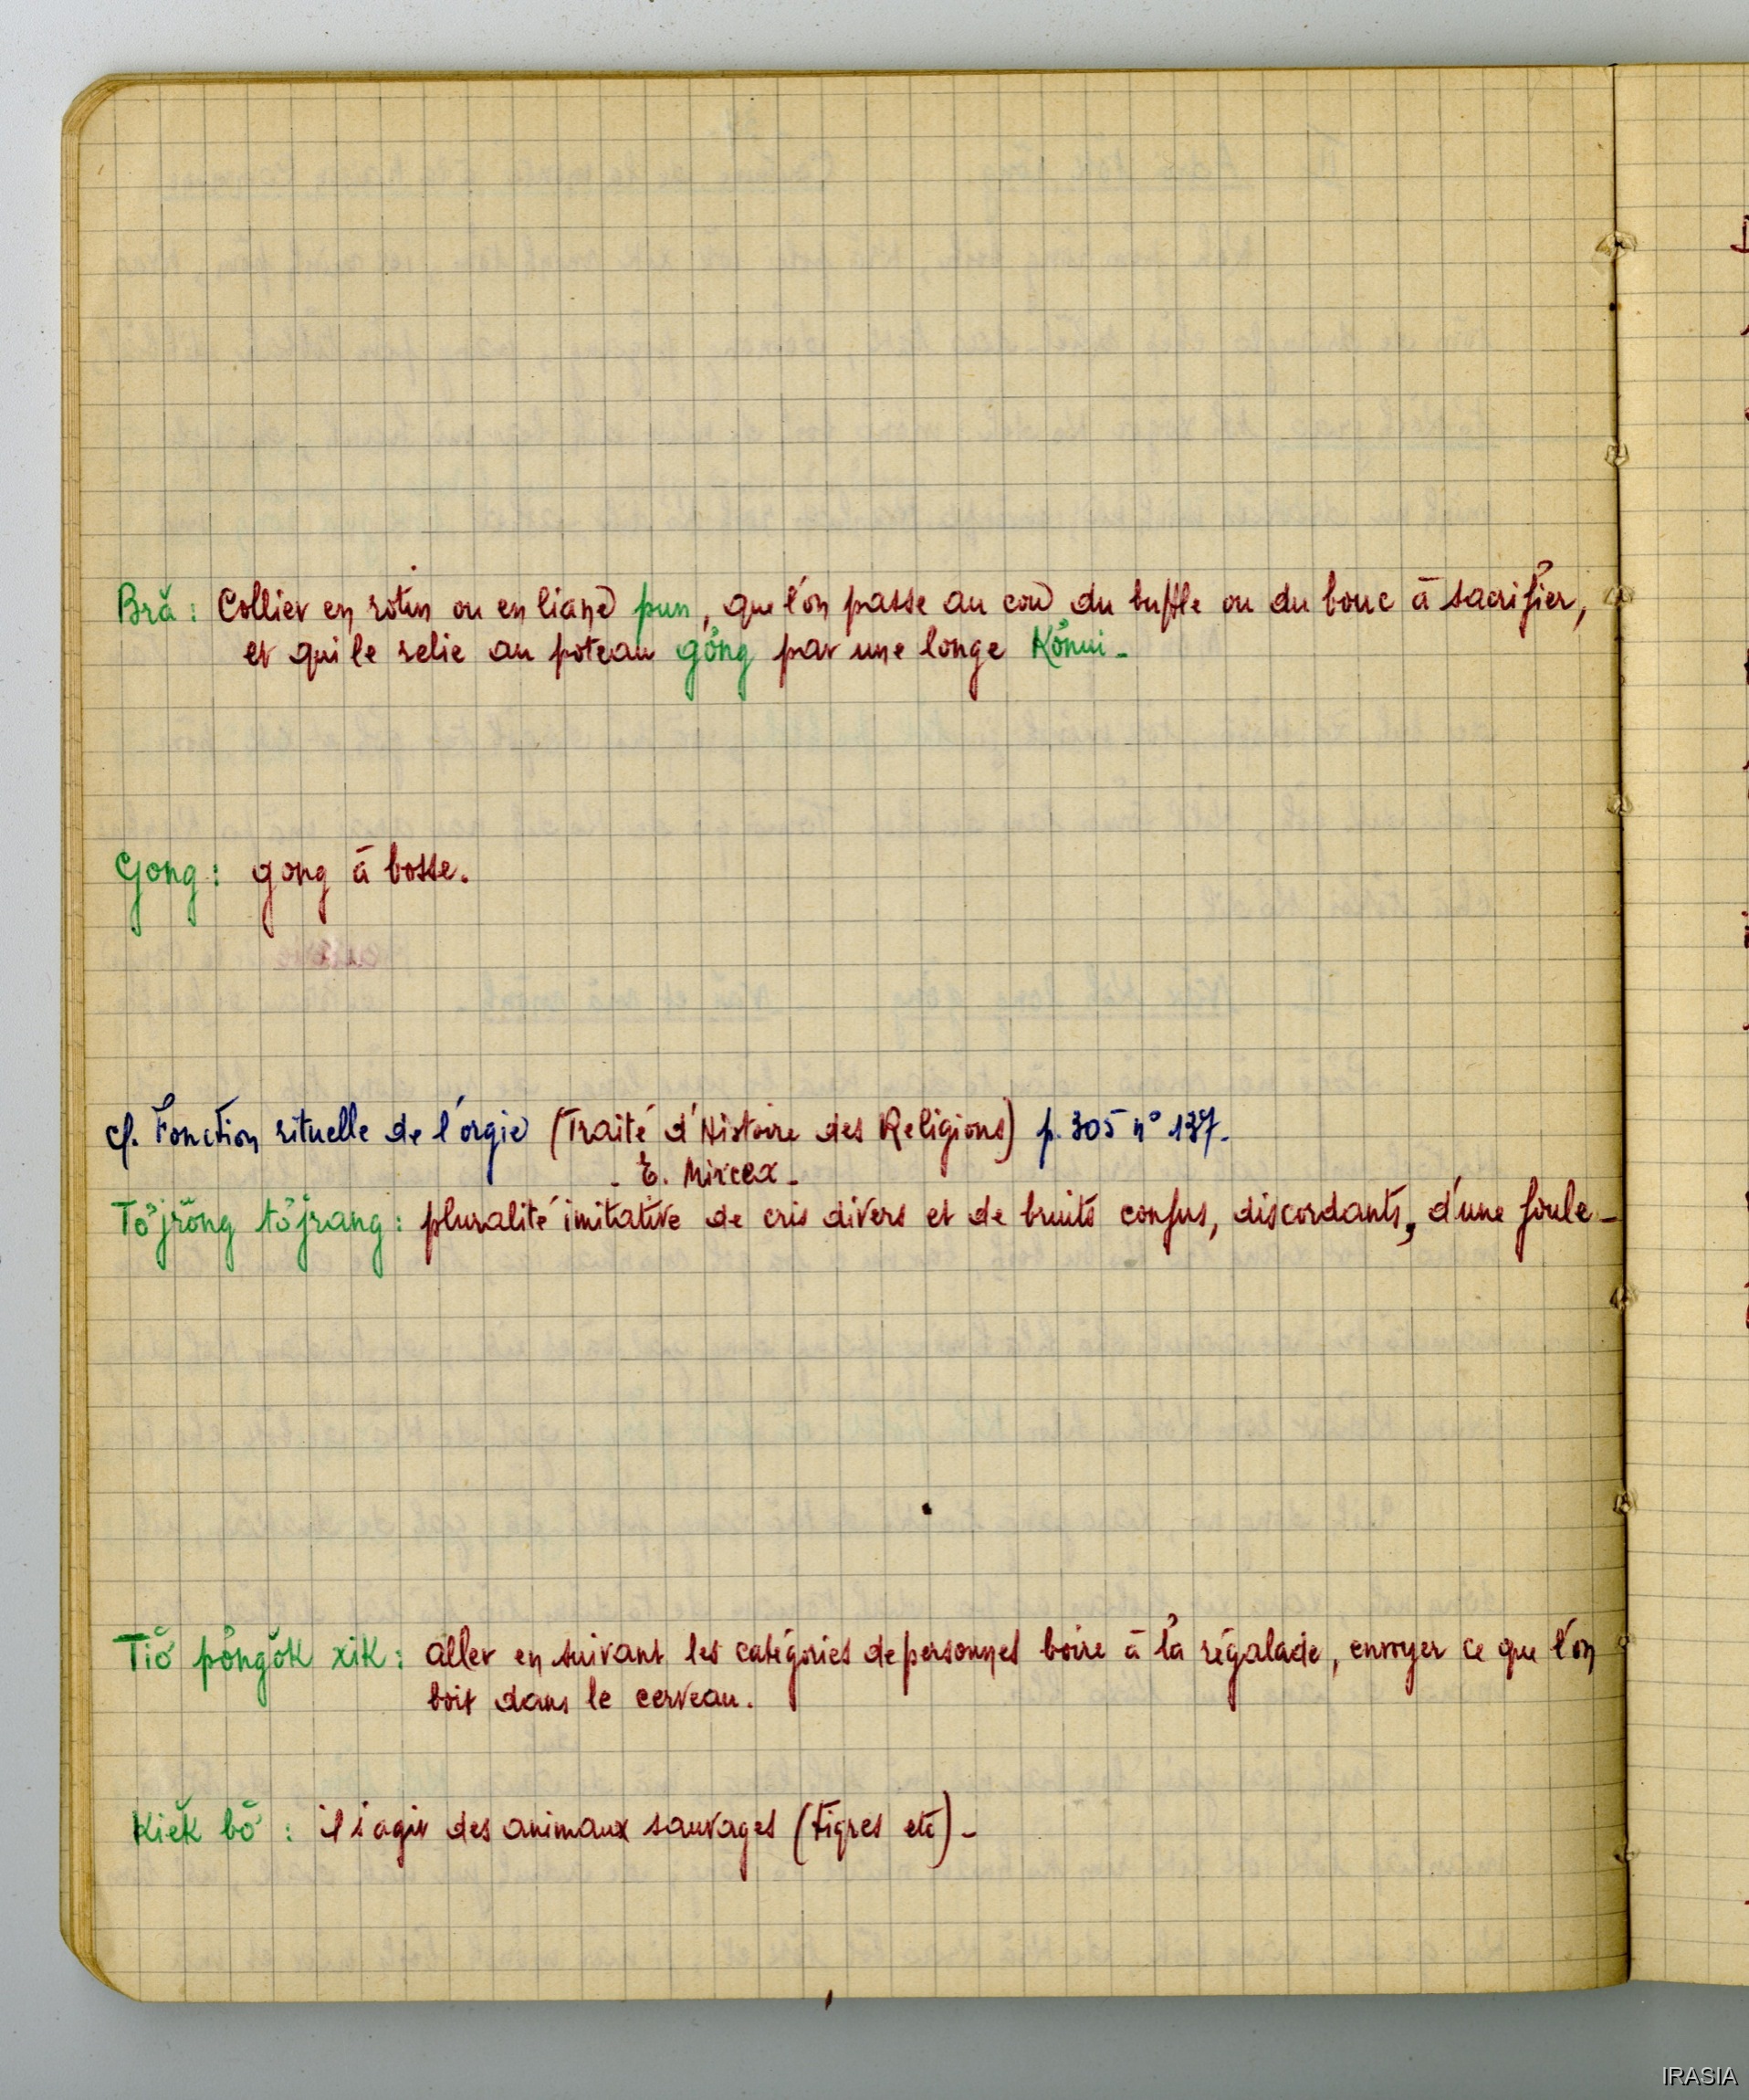 Bră : Collier en rotin ou en liane pun, que l'on passe au cou du buffle ou du bouc à sacrifier,
et qui le relie au poteau gơ̆ng par une longe Kơ̆nui -
Gong : gong à bosse.
cf. Fonction rituelle de l'orgie (Traité d'Histoire des Religions) p. 305 n° 137.
- E. Mircea -
Tơ̆jrŏng tơ̆jrang : pluralité imitative de cris divers et de bruits confus, discordants, d'une foule -
Tiơ̆ pơ̆ngŏk xik : aller en suivant les catégories de personnes boire à la régalade, envoyer ce que l'on
boit dans le cerveau.
Kiĕk bơ̆ : il s'agit des animaux sauvages (tigres etc) -
IRASIA